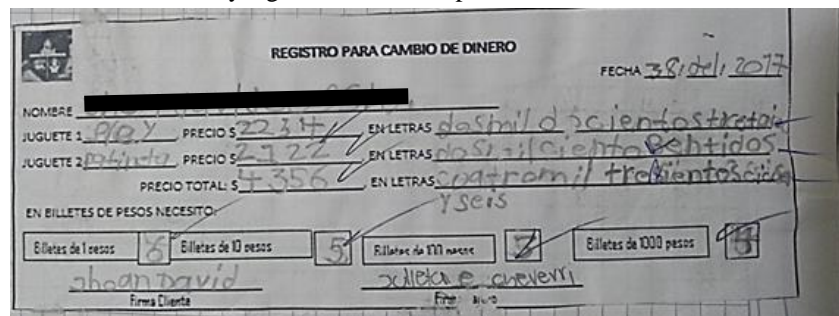 REGISTRO PARA CAMBIO DE DINERO
FECHA 38/del/2017
NOMBRE
JUGUETE 1 Play PRECIO $ 2234 EN LETRAS dosmil d scientos tretai
JUGUETE 2 PRECIO $ 2122 EN LETRAS dosmil ciento bentidos
PRECIO TOTAL: $ 4356 EN LETRAS cuatromil tresientos
y seis
EN BILLETES DE PESOS NECESITO:
Billetes de 1 pesos 6 Billetes de 10 pesos 5 Billetes de 100 pesos Billetes de 1000 pesos 4
Jhoan David
Firma Cliente